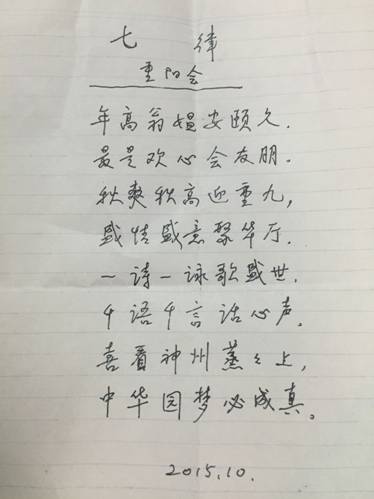 七律
重阳会
年高翁媪安颐久.
最是欢心会友朋.
秋爽秋高迎重九,
盛情盛意聚华厅.
一诗一咏歌盛世.
千语千言话心声.
喜看神州蒸々上,
中华园梦必成真。
2015.10.